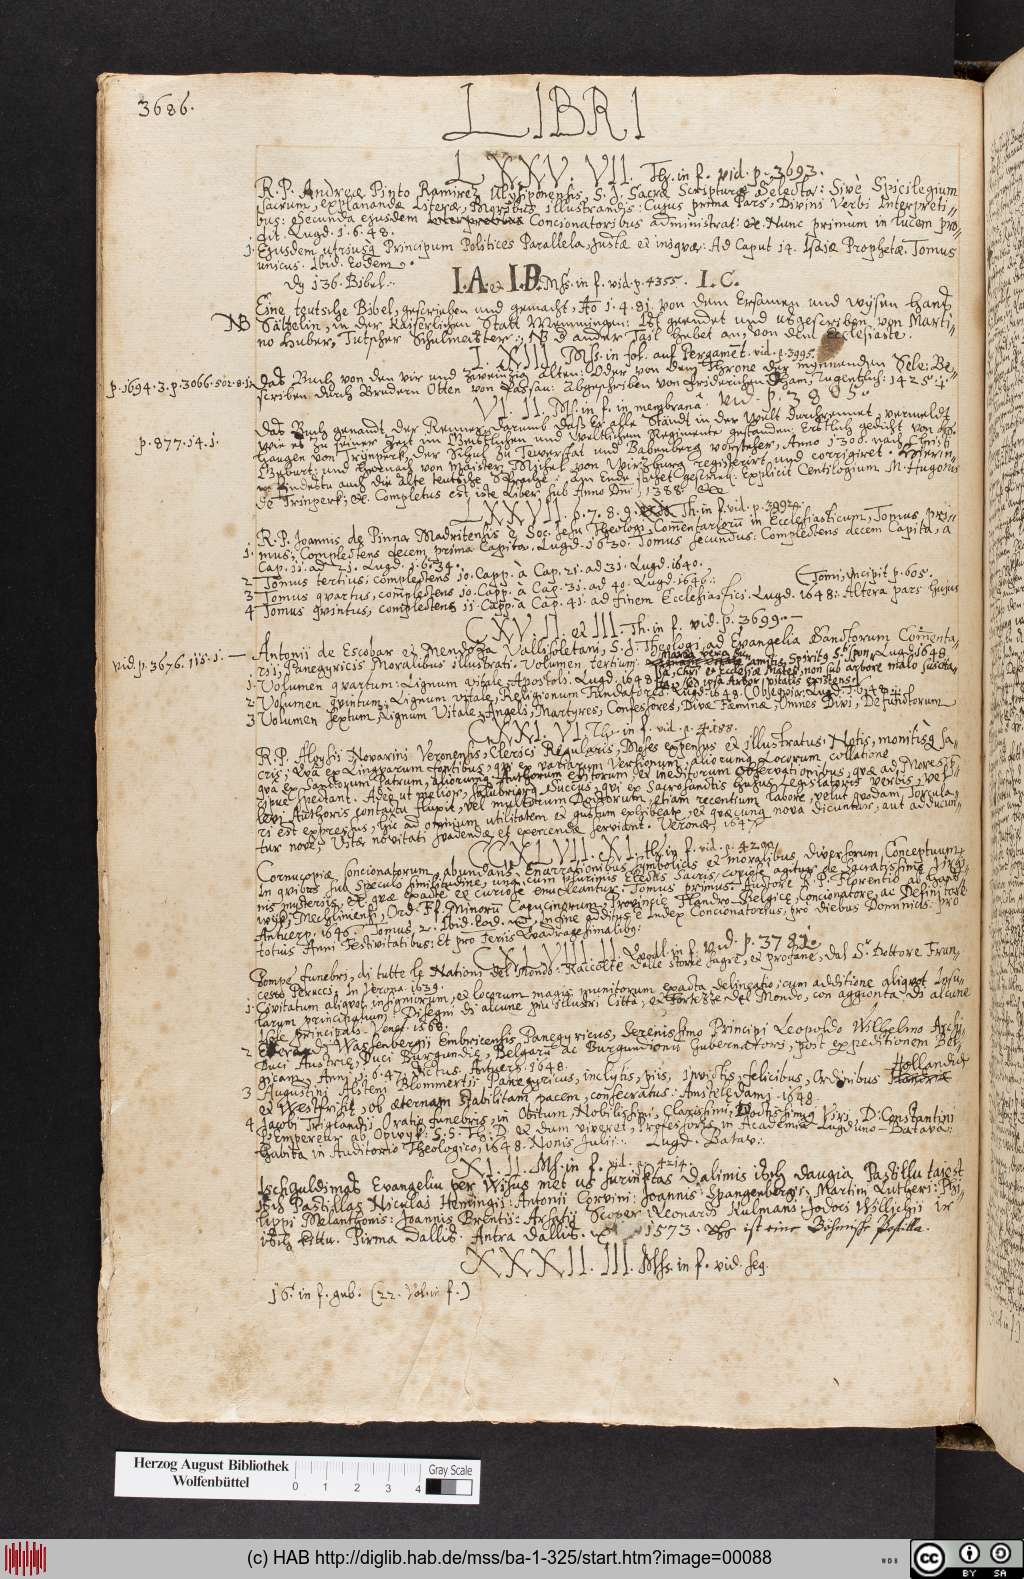 3686.
LIBRI
LXXV. VII. Th. in f. vid. p. 3693.
R. P. Andreæ Pinto Ramirez Ulyssiponensis, S. J. Sacræ Scripturæ Selecta: Sive Spicilegium
sacrum, explanandæ Literæ, Moribus illustrandis: Cujus prima Pars, Divini Verbi Interpreti=
bus: Secunda ejusdem Concionatoribus administrat: &c. Nunc primùm in lucem pro=
dit. Lugd. 1.6.48.
1. Ejusdem utriusq Principum Politices Parallela, justæ et iniquæ: Ad Caput 14. Isaiæ Prophetæ. Tomus
unicus. Ibid. Eodem.
Dz 136. Bibel.
I.A. et I.B. Mss. in f. vid. p. 4355. I.C.
NB Eine teutsche Bibel, geschrieben und gemacht, Ao 1.4.81. von dem Ersamen und wysen Hans
Sättelin, in der Kaiserlichen Statt Memmingen: Ist geendet und usgeschriben von Marti=
no Huber, Tutscher Schulmeister: NB d ander Tail hebet an, von dem Ecclesiaste.
I. XIII. Mss. in fol. auf Pergament. vid. p. 3995.
p. 1694. 3. p. 3066. 502. 8. 12 Das Buch von den vir und zweinzig alten: Oder von dem Throne der mynnenden Sele: Be=
schriben durch Brudern Otten von Passau: Abgeschriben von Friderichen Tugenthus: 1425.
VI. II. Ms. in f. in membranâ. vid. p. 3805.
p. 877. 14. 1. Das Buch genandt, der Renner, darumb dass Er alle Ständt in der Wült durchrennet, vermeldt
wie es zu seiner Zeit im Geistlichen und Weltlichen Regimente gestanden: Erstlich gedicht von
haugen von Trymperk, der Schul zu Tewerstat und Babenberg vorsteher, Anno 1300. nach Christi
Geburt: und hernach von Maister Michel von Wirzburg registrirt und corrigiret. Hierin=
nen findestu auch die alte teutsche Sprache: am Ende stehet geschrieb. Explicit Centilogium M. Hugonis
de Trinperk; &c. Completus est iste Liber sub Anno Dni 1388.
LXXVII. 6. 7. 8. 9. Th. in f. vid. p. 3992.
R. P. Joannis de Pinna Madritensis è Soc. Jesu Theologi, Comentariorum in Ecclesiasticum, Tomus pri=
1. mus: Complectens decem prima Capita. Lugd. 1630. Tomus secundus: Complectens decem Capita, à
Cap. 11. ad 21. Lugd. 1.6.34.
2 Tomus tertius; complectens 10. Capp. à Cap. 21. ad 31. Lugd. 1640.
3 Tomus quartus, complectens 10. Capp. à Cap. 31. ad 40. Lugd. 1646. (Tomi, incipit p. 605.
4 Tomus quintus, complectens 11. Capp. à Cap. 41. ad finem Ecclesiastici. Lugd. 1648: Altera pars hujus
CXV. II. et III. Th. in f. vid. p. 3699.
vid. p. 3676. 115. 1. Antonii de Escobar et Mendoza Vallisoletani, S. J. Theologi, ad Evangelia Sanctorum Commenta=
rii, Panegyricis Moralibus illustrati. Volumen tertium. Maria vera Lugd. 1648.
1. Volumen quartum: Lignum vitale, Apostoli. Lugd. 1648.
2 Volumen quintum; Lignum vitale, Religionum Fundatores. Lugd. 1649. Lugd. 1648.
3 Volumen sextum; Lignum Vitale, Angeli, Martyres, Confessores, Divæ Fæminæ, Omnes Divi, Defunctorum
CXVI. VI. Th. in f. vid. p. 4188.
R. P. Aloysii Novarini Veronensis, Clerici Regularis, Moses expensus et illustratus. Notis, monitisq sa=
cris; quæ ex Linguarum fontibus; qui ex variarum Versionum, aliorumq Locorum collatione
quæ ex Sanctorum Patrum, aliorumq Authorum editorum, et ineditorum observationibus, quæ ad Mores
spectant. Adeò ut melior, salubriorq succus, qui ex Sacrosanctis hujus Legislatoris verbis, vel
levi Authoris contactu fluxit, vel multorum Doctorum, etiam recentium labore, velut quodam Torcula=
ri est expressus, hic ad omnium utilitatem et gustum exhibeatur, et quæcunq nova dicuntur, aut adducun=
tur novè, Vitæ novitati suadendæ et exercendæ serviant. Veronæ, 1647.
CCXLVII. XI. Th. in f. vid. p. 4200.
Cornucopiæ, Concionatorum abundans, Enarrationibus symbolicis et moralibus, diversorum Conceptuum:
In quibus sub speculo similitudine, unà cum plurimis Textis Sacris, curiosè agitur de Sacratissimis Virgi=
nis mysteriis; et quæ exactè et curiosè enucleantur: Tomus primus: Auctore R. P. Florentio ab
Mechlinensi, Ord. Ff. Minorum Capucinorum, Provinciæ Flandro-Belgicæ, Concionatore, ac Definitore.
Antverp. 1646. Tomus 2. Ibid. Eod. In fine additus è Index Concionatorius, pro diebus Dominicis: pro
totius Anni Festivitatibus; Et pro Feriis Quadragesimalibus:
CXLVIII. II. Quodl. in f. vid. p. 3781.
Pompe funebri, di tutte le Nationi del mondo: Raccolte dalle storie sagre, et profane, dal Sr. Dottore Fran=
cesco Perucci. In Verona. 1639.
1 Civitatum aliquot insigniorum, et locorum magis munitorum exacta delineatio; cum additione aliquot Insu=
larum principalium: Disegni di alcune piu illustri Citta, et Fortezze del Mondo, con aggionta di alcune
Isole principali. Venet. 1568.
2 Everardi Wassenbergii Embricensis, Panegyricus, serenissimo Principi Leopoldo Wilhelmo Archi=
Duci Austriæ, Duci Burgundiæ, Belgarum ac Burgundionum Gubernators, post expeditionem Bel=
gicam, Anni 1.6.47. dictus. Antverp. 1648.
3 Augustini Alsteni Blommertii Panegyricus, inclytis, piis, invictis, felicibus, Ordinibus Hollandiæ
et Westfrisiæ, ob æternam stabilitam pacem, consecratus. Amsteledami. 1648.
4 Jacobi Triglandii Oratio funebris, in Obitum, Nobilissimi, Clarissimi, Doctissimiq Viri, D. Constantini
l'Empereur ab Opwyk: S.S. Th. D. et dum viveret, Professoris in Academia Lugduno-Batava:
habita in Auditorio Theologico, 1648. Nonis Julii: Lugd. Batav:
XI. II. Ms. in f. vid. p. 4214.
Ischguldimas Evangeliu per Wisus met us
Postillas Nicolai Hemingii: Antonii Corvini: Joannis Spangenbergii: Martini Lutheri: Phi=
lippi Melanthonis: Joannis Brentii: Arsatii Scoper: Leonardi Kulmani: Jodoci Willichii ir
kittu. Pirma Dallis. Antra Dallis. 1573. ist eine Böhmische Postilla.
XXXII. III. Mss. in f. vid. seq.
16. in f. gub. (22. Vol. in f.)
Herzog August Bibliothek
Wolfenbüttel
0 1 2 3 4
Gray Scale
(c) HAB http://diglib.hab.de/mss/ba-1-325/start.htm?image=00088
WDB
cc BY SA